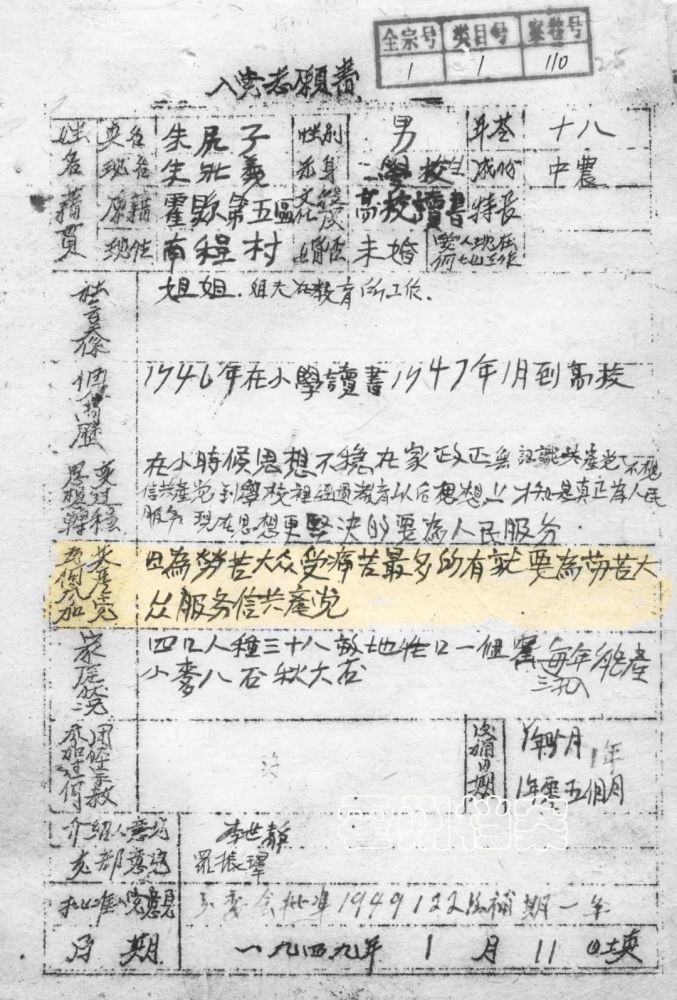 全宗号 类目号 案卷号
1 1 110
入党志愿書
姓名 英名 朱尻子 性别 男 年苓 十八
现名 朱 義 示身 學校生 成份 中農
籍贯 原籍 霍縣第五區 文化程度 高校讀書 特長
现住 南程村 婚否 未婚
社会关係 姐姐.姐夫在教育所工作.
個人歷 1946年在小學讀書1947年1月到高校
思想轉变过程 在小時候思想不穩在家 認識共產党 不想
信共產党到學校裡經過教育以后思想 才知是真正為人民
服务 现在思想更堅決的要為人民服务.
為何參加共產党 因為勞苦大众受痛苦最多的有就要為劳苦大
众服务信共產党
家庭状况 四口人種三十八畝地牲口一個 每年能產
小麥八石秋大石
参加过何 没 候補日期 1年 月
1年零五個月
介绍人意见 李世靜
支部意見 羅振
批准 意見 委会批準1949 1 22 候補期一年
日期 一九四九年 1 月 11 日填
亳州档案